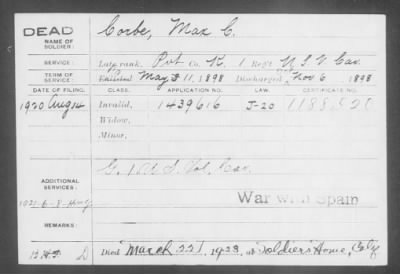 DEAD
NAME OF SOLDIER: Corbe, Max C.
SERVICE: Late rank, Pvt Co. K, 1 Reg't U.S.V. Cav.
TERM OF SERVICE: Enlisted May 11, 1898 Discharged Nov 6 1898
DATE OF FILING. CLASS. APPLICATION NO. LAW. CERTIFICATE NO.
1920 Aug 14 Invalid, 1439616 J-20 1188520
Widow,
Minor,
ADDITIONAL SERVICES: G. 1 U.S. Vol. Cav.
War with Spain
REMARKS:
D Died March 22, 1928, at Soldiers Home, Calif